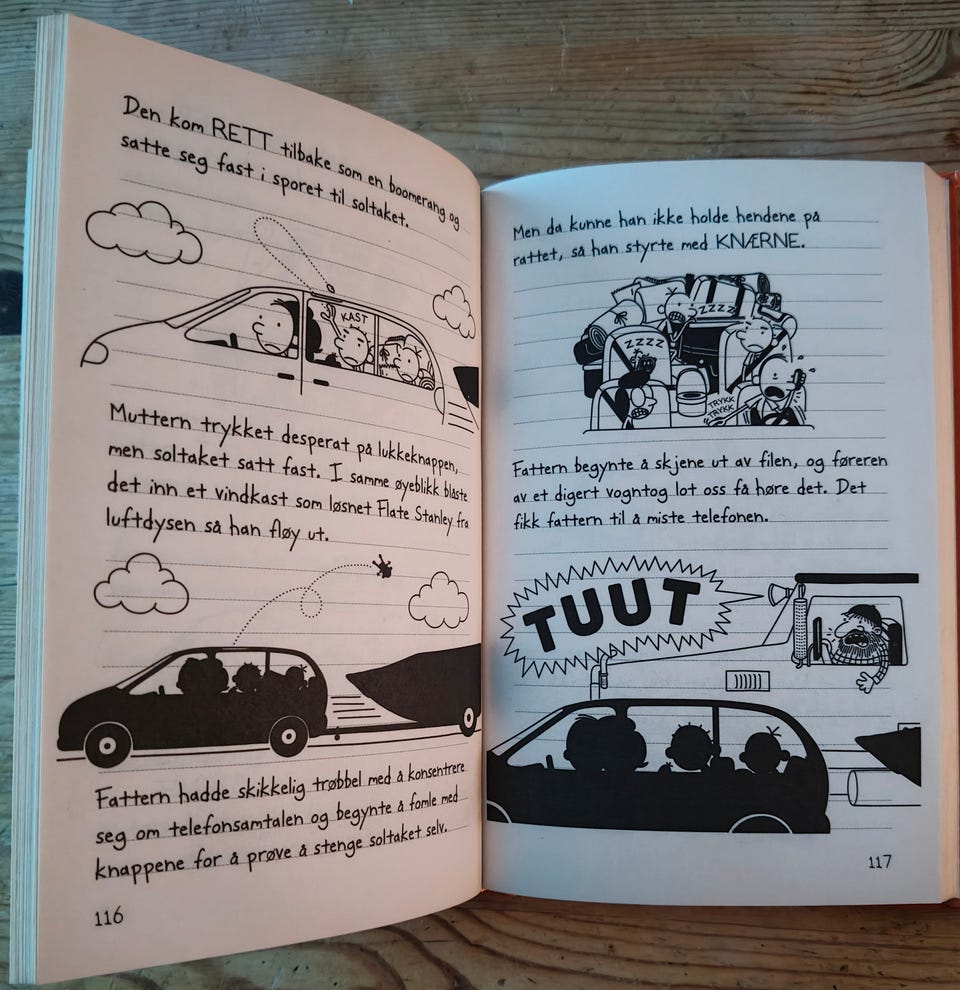 Den kom RETT tilbake som en boomerang og
satte seg fast i sporet til soltaket.
KAST
Muttern trykket desperat på lukkeknappen,
men soltaket satt fast. I samme øyeblikk blåste
det inn et vindkast som løsnet Flate Stanley fra
luftdysen så han fløy ut.
Fattern hadde skikkelig trøbbel med å konsentrere
seg om telefonsamtalen og begynte å fomle med
knappene for å prøve å stenge soltaket selv.
116
Men da kunne han ikke holde hendene på
rattet, så han styrte med KNÆRNE.
ZZZZ
ZZZZ
TRYKK
TRYKK
Fattern begynte å skjene ut av filen, og føreren
av et digert vogntog lot oss få høre det. Det
fikk fattern til å miste telefonen.
TUUT
117